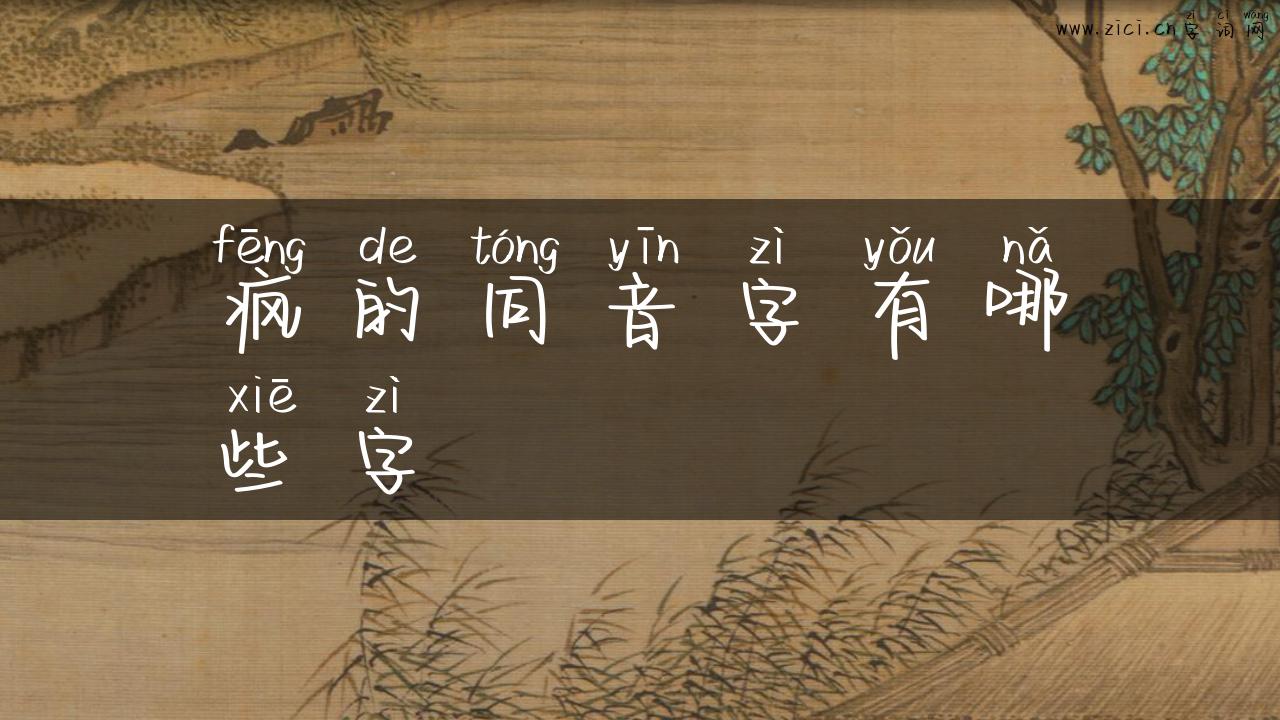 zì cí wǎng
www.zici.cn字词网
fēng de tóng yīn zì yǒu nǎ
疯的同音字有哪
xiē zì
些字